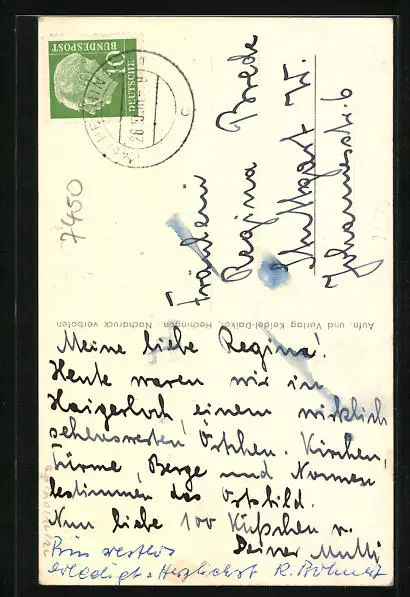 DEUTSCHE
BUNDESPOST
10
HECHINGEN
c
7450
Fräulein
Regina Brede
Stuttgart W.
Johannesstr. 6
Aufn. und Verlag Keidel-Daiker, Hechingen Nachdruck verboten
Meine liebe Regina!
Heute waren wir in
Haigerloch, einem wirklich
sehenswerten Örtchen. Kirchen,
Türme, Berge und Nonnen
bestimmen das Ortsbild.
Nun liebe 100 Küßchen v.
Deiner Mutti
Bin restlos
erledigt. Herzlichst R.